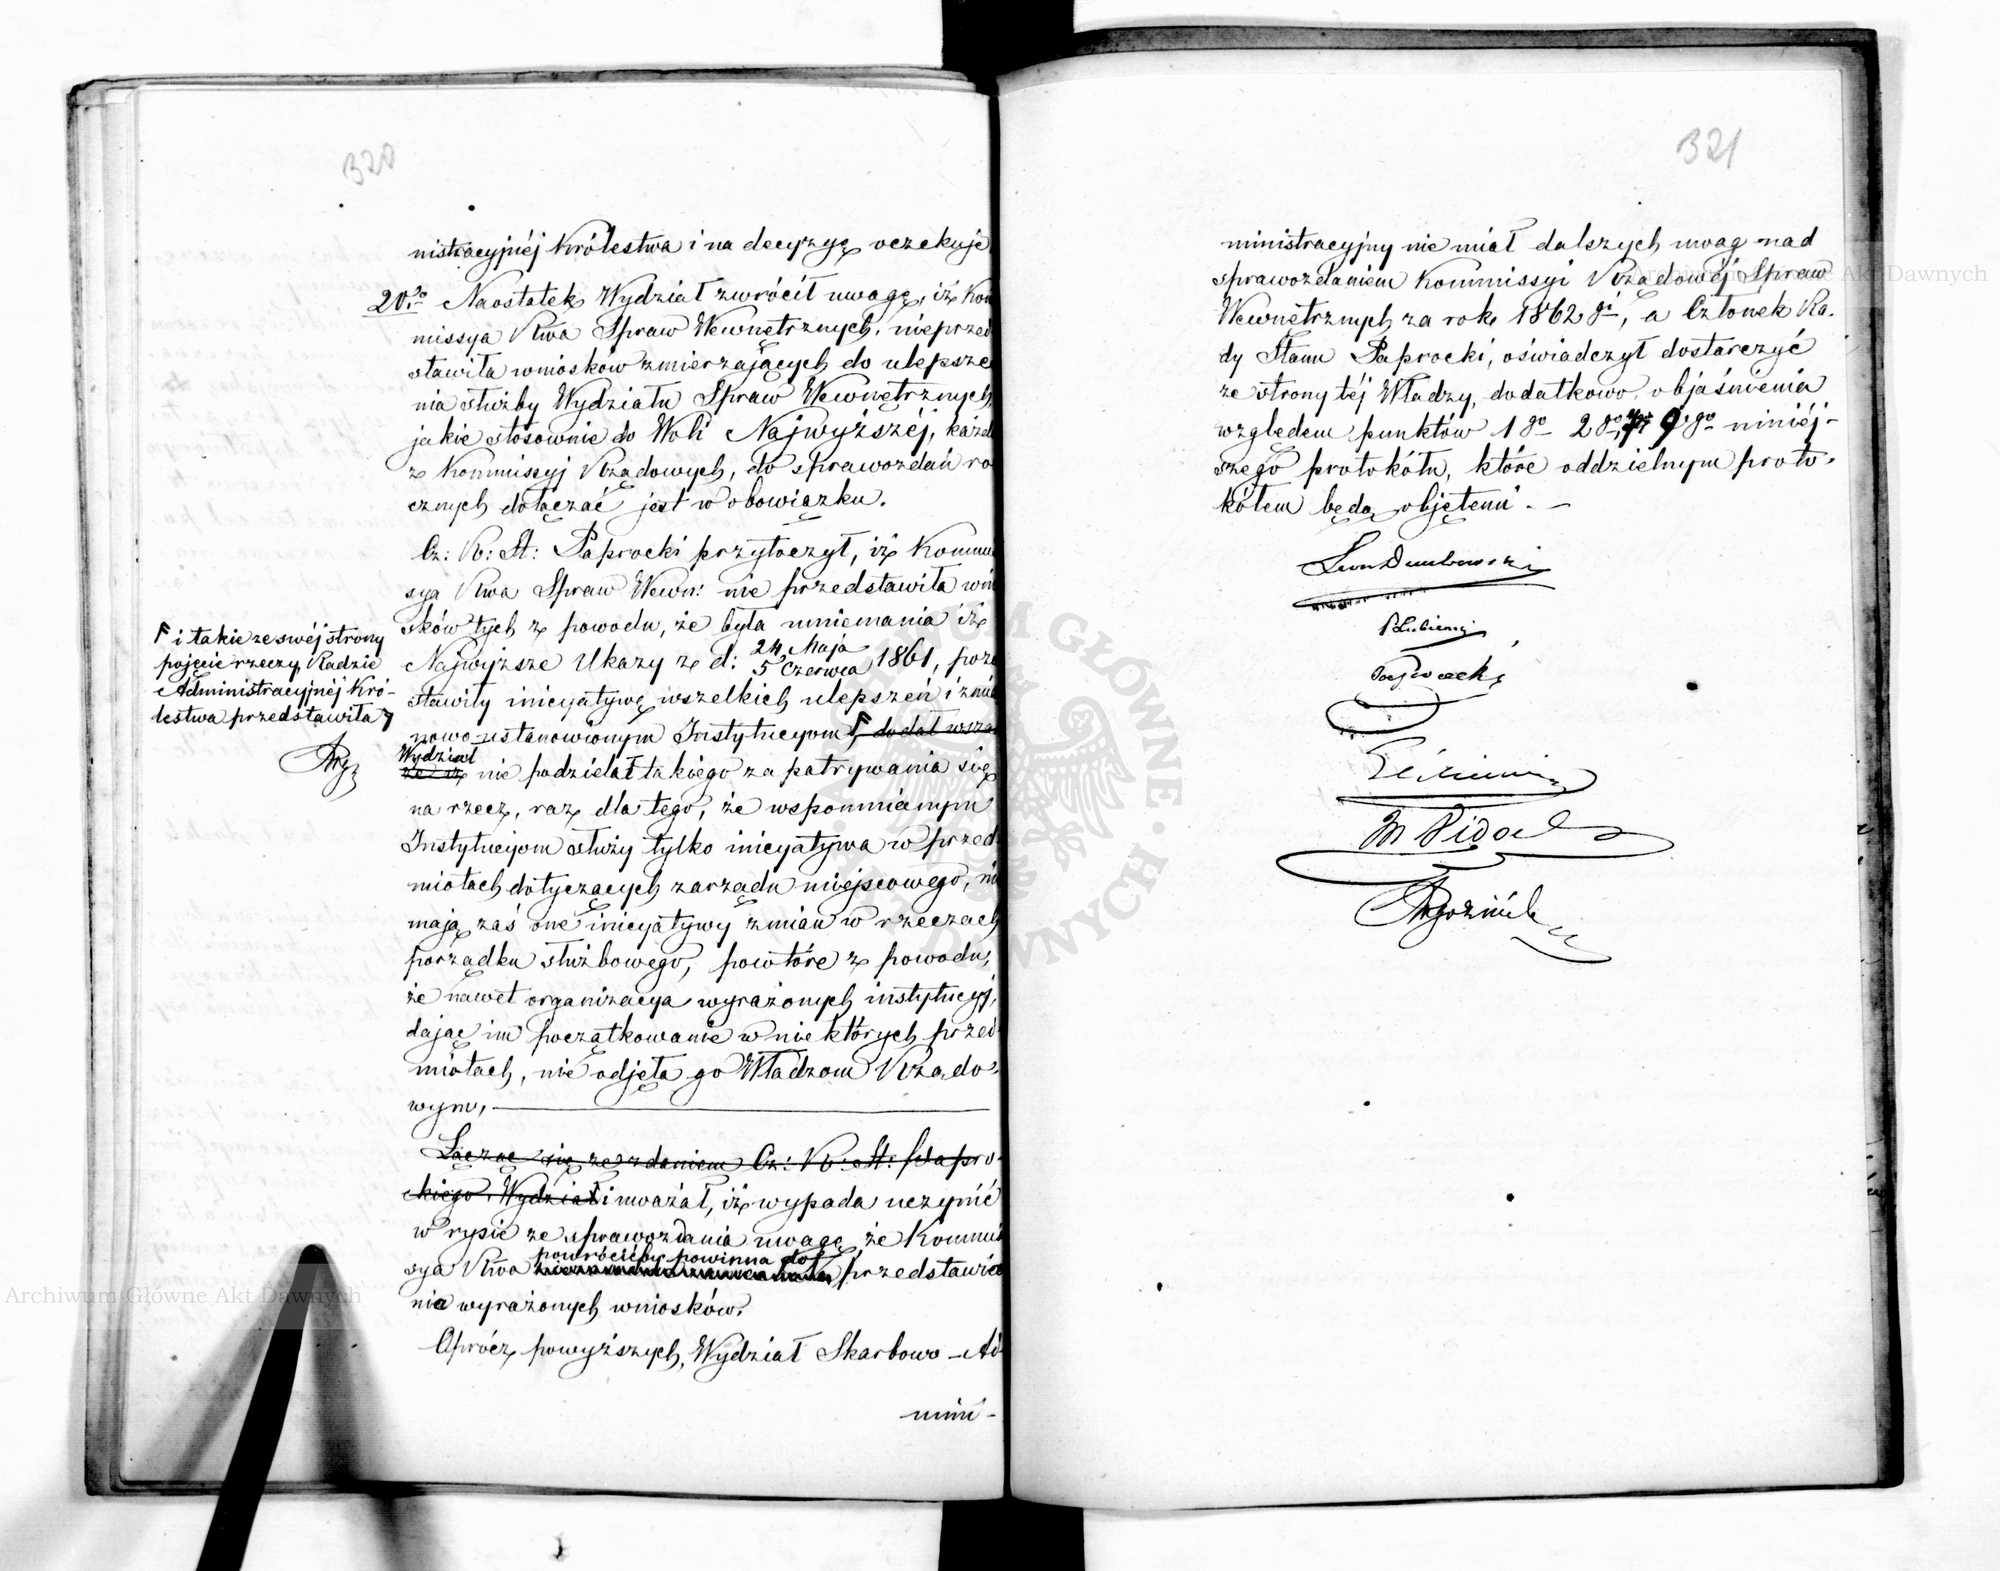 320
nistracyjnéj Królestwa i na decyzyę oczekuje
20.° Naostatek Wydział zwrócił uwagę, iż Kom
missya Rwa Spraw Wewnętrznych, nieprzed
stawiła wniosków zmierzających do ulepsze
nia służby Wydziału Spraw Wewnętrznych,
jakie stosownie do Woli Najwyższéj, każd
z Kommissyj Rządowych, do sprawozdań ro
cznych dołączać jest w obowiązku.
Cz: R: St: Paprocki przytoczył, iż Kommi
sya Rwa Spraw Wewn: nie przedstawiła wni
sków tych z powodu, że była mniemania iż
Najwyższe Ukazy z d: 24 Maja
5 Czerwca 1861, pozo
stawiły inicyatywę wszelkich ulepszeń i zmi
nowo ustanowionym Instytucyom dodał wsza
Wydział
że iż nie podzielał takiego zapatrywania się
na rzecz, raz dla tego, że wspomnianym
Instytucyom służy tylko inicyatywa w przed
miotach dotyczących zarządu miejscowego, ni
mają zaś one inicyatywy zmian w rzeczach
porządku służbowego, powtóre z powodu,
że nawet organizacya wyrażonych instytucyj,
dając im początkowanie w niektórych przed
miotach, nie odjęła go Władzom Rządo-
wym,
Łącząc się ze zdaniem Cz: R: St: Papro-
ckiego, Wydział i uważał, iż wypada uczynić
w rysie ze sprawozdania uwagę, że Kommis
powrócićby powinna do
sya Rwa przedstawie
nia wyrażonych wniosków.
Oprócz powyższych, Wydział Skarbowo-Ad
mini-
i takie ze swéj strony
pojęcie rzeczy, Radzie
Administracyjnéj Kró-
lestwa przedstawiła
321
ministracyjny nie miał dalszych uwag nad
sprawozdaniem Kommissyi Rządowéj Spraw
Wewnętrznych za rok 1862gi, a Członek Ra-
dy Stanu Paprocki, oświadczył dostarczyć
ze strony téj Władzy, dodatkowo objaśnienia
względem punktów 1go 2go, 9go niniéj-
szego protokółu, które oddzielnym proto-
kółem będą objętemi. —
Leon Dembowski
PŁubieński
Archiwum Główne Akt Dawnych
Archiwum Główne Akt Dawnych
ARCHIWUM GŁÓWNE AKT DAWNYCH